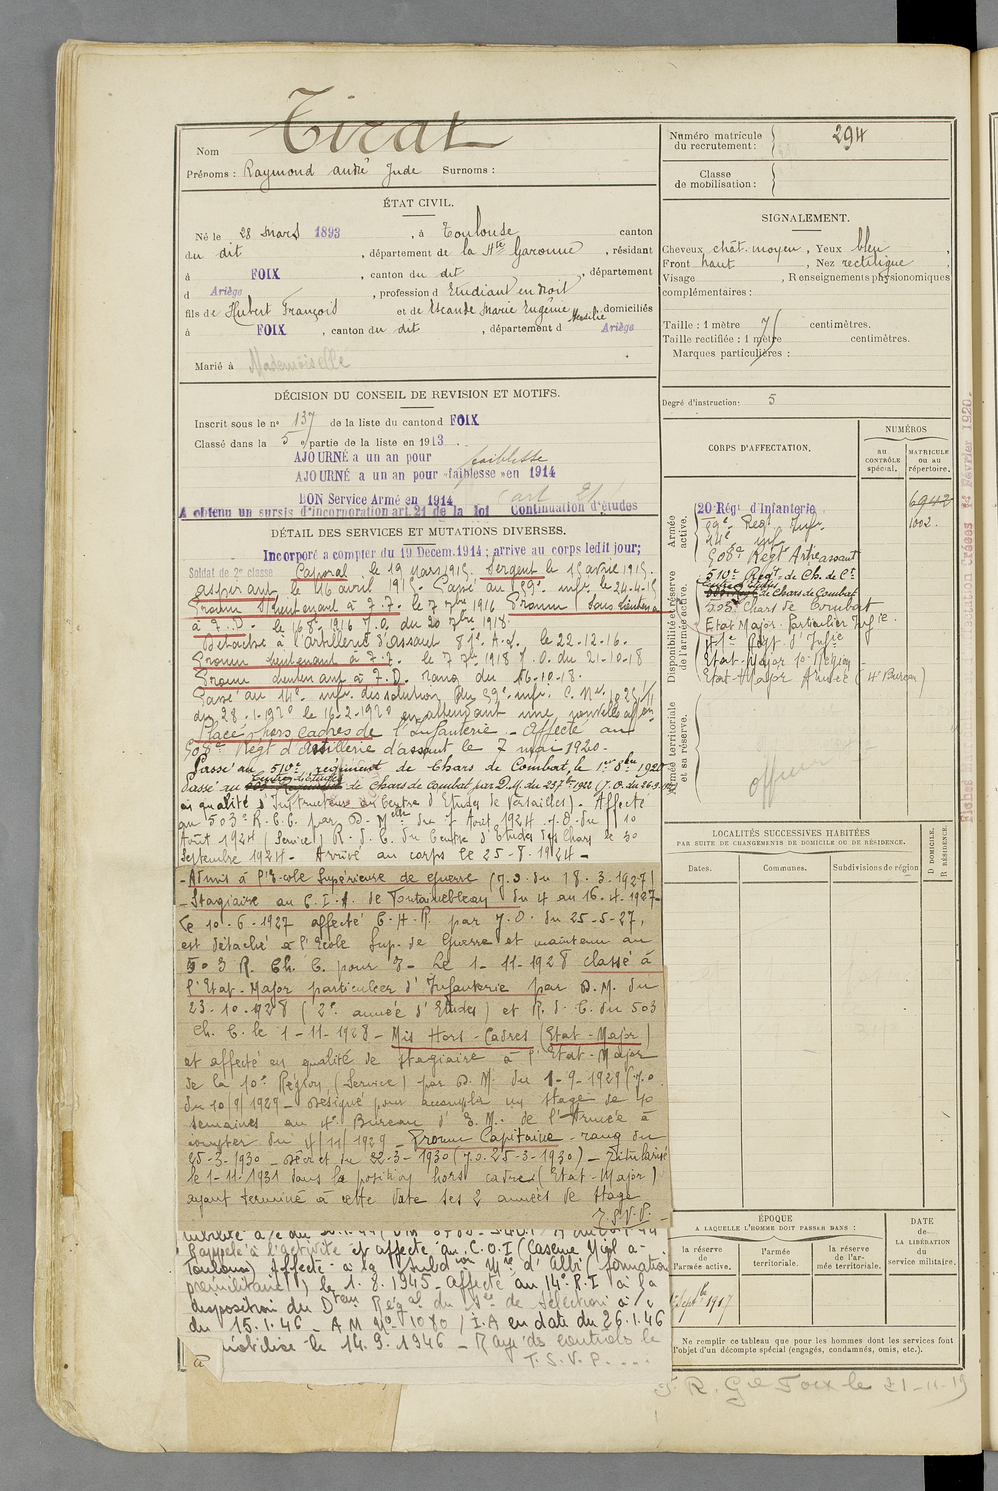 Nom Tirat
Prénoms : Raymond André Jude Surnoms :
ÉTAT CIVIL.
Né le 28 Mars 1893, à Toulouse canton
du dit, département de la Hte Garonne, résidant
à FOIX, canton du dit, département
d Ariège, profession d Etudiant en droit
fils de Hubert François et de Escande Marie Eugénie domiciliés
à FOIX, canton du dit, département d Ariège
Marié à Mademoiselle
DÉCISION DU CONSEIL DE REVISION ET MOTIFS.
Inscrit sous le no 137 de la liste du canton d FOIX
Classé dans la 5e partie de la liste en 1913
AJOURNÉ a un an pour faiblesse
AJOURNÉ a un an pour «faiblesse» en 1914
BON Service Armé en 1914 (art 21)
A obtenu un sursis d'incorporation art. 21 de la loi Continuation d'études
DÉTAIL DES SERVICES ET MUTATIONS DIVERSES.
Incorporé a compter du 19 Decem. 1914 ; arrive au corps ledit jour;
Soldat de 2e classe Caporal le 19 mars 1915. Sergent le 15 avril 1915.
aspirant le 16 avril 1915. Passé au 59e infie le 24-4-15
Promu S/lieutenant à T.T. le 7 7bre 1916 Promu Sous lieutenant
à T.D. le 16 8bre 1916 J.O. du 20 7bre 1918.
Détaché à l'artillerie d'assaut 81e A.L. le 22-12-16.
Promu lieutenant à T.T. le 7 7bre 1918 J.O. du 21-10-18
Promu lieutenant à T.D. rang du 16-10-18.
Passé au 14e infie dissolution du 59e infie C. Mle
du 28-1-1920 le 16-2-1920 en attendant une nouvelle affon
Placé hors cadres de l'infanterie - Affecté au
508e Régt d'artillerie d'assaut le 7 mai 1920-
Passé au 510e régiment de Chars de Combat, le 1er 8bre 1920
Passé au Centre d'études de chars de Combat par D.M. du 23 7bre 1922 (J.O. du 26.9.1922
en qualité d'Instructeur au Centre d'Etudes de Versailles) - Affecté
au 503e R.C.C. par D. Melle du 7 Aout 1924 J.O. du 10
Août 1924 (Service) R.d.C. du Centre d'Etudes des Chars le 30
Septembre 1924 - Arrivé au corps le 25-8-1924 -
- Admis à l'Ecole Supérieure de guerre (J.O. du 18.3.1927)
- Stagiaire au C.I.A. de Fontainebleau du 4 au 16-4-1927-
Le 10-6-1927 affecté C.H.R. par J.O. du 25-5-27,
est détaché à l'Ecole Sup. de Guerre et maintenu au
503 R. Ch. C. pour - Le 1-11-1928 classé à
l'Etat-Major particulier d'Infanterie par D.M. du
23-10-1928 (2e année d'Etudes) et R.d.C. du 503
Ch. C. le 1-11-1928 - Mis Hors-Cadres (Etat-Major)
et affecté en qualité de stagiaire à l'Etat-Major
de la 10e Région (Service) par D.M. du 1-9-1929 (J.O.
du 10/9/1929 - Désigné pour accomplir un stage de 10
semaines au 4e Bureau d'E.M. de l'Armée à
compter du 4/11/1929 - Promu Capitaine - rang du
25-3-1930 - Décret du 22-3-1930 (J.O. 25-3-1930) - Titularisé
le 1-11-1931 dans la position hors cadres (Etat-Major)
ayant terminé à cette date ses 2 années de stage
T.S.V.P. -
Rappelé à l'activité et affecté au C.O.I (Caserne Niel à
Toulouse) Affecté à la Subdion Mre d'Albi (formation
prémilitaire) le 1.8.1945 - Affecté au 14e R.I à la
disposition du Dteur Régal du Sce de Sélection
du 15.1.46 - A M No 1080 / I.A en date du 26.1.46
le 14.9.1946 - Rayé des contrôles le
T.S.V.P....
Numéro matricule du recrutement : 294
Classe de mobilisation :
SIGNALEMENT.
Cheveux chât. moyen, Yeux bleu,
Front haut, Nez rectiligne,
Visage, Renseignements physionomiques
complémentaires :
Taille : 1 mètre 71 centimètres.
Taille rectifiée : 1 mètre centimètres.
Marques particulières :
Degré d'instruction : 5
CORPS D'AFFECTATION.
NUMÉROS
au CONTRÔLE spécial.
MATRICULE ou au répertoire.
Armée active.
Disponibilité et réserve de l'armée active.
Armée territoriale et sa réserve.
20 Rég. d'Infanterie 6942
59e Régt Inf. 1002.
14e inf
508e Régt Artie assaut
510e Régt de Ch. de Ct
Centre d'études de Chars de Combat
503e Chars de Combat
Etat Major Particulier Infie
Régt d'Infie
Etat-Major 10e Région -
Etat-Major Armée (4e Bureau)
officier
LOCALITÉS SUCCESSIVES HABITÉES
PAR SUITE DE CHANGEMENTS DE DOMICILE OU DE RÉSIDENCE.
Dates. Communes. Subdivisions de région
D DOMICILE. R RÉSIDENCE.
ÉPOQUE
A LAQUELLE L'HOMME DOIT PASSER DANS :
la réserve de l'armée active.
l'armée territoriale.
la réserve de l'armée territoriale.
DATE de LA LIBÉRATION du service militaire.
Septbre 1917
Ne remplir ce tableau que pour les hommes dont les services font
l'objet d'un décompte spécial (engagés, condamnés, omis, etc.).
Foix le 21-11-19